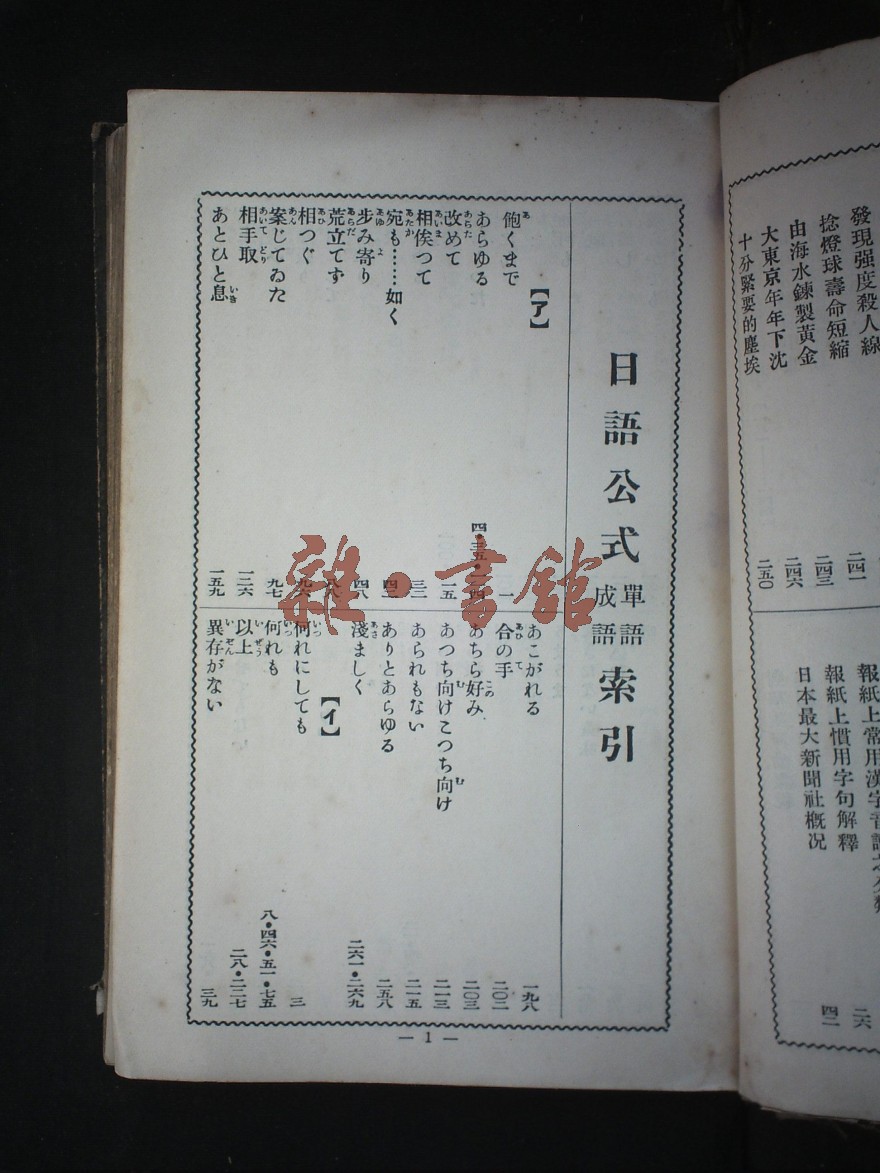 發現强度殺人線 二四一
捻燈球壽命短縮 二四三
由海水鍊製黃金 二四六
大東京年年下沈 二五〇
十分緊要的塵埃
報紙上常用漢字音 二六
報紙上慣用字句解釋 四二
日本最大新聞社概况
日語公式單語成語索引
【ア】
飽くまで 一
あらゆる
改めて 一五
相俟つて 三三
宛も……如く 四三
步み寄り 四八
荒立てす 八八
相つぐ 九六
案じてゐた 九七
相手取 一二六
あとひと息 一五九
あこがれる 一九八
合の手 二〇二
あちら好み 二〇三
あつち向けこつち向け 二一三
あられもない 二一五
ありとあらゆる 二五八
淺ましく 二六一・二六九
【イ】
何れにしても 三
何れも 八・四六・五一・七五
以上 二八・二二七
異存がない 三九
— 1 —
雜·書館